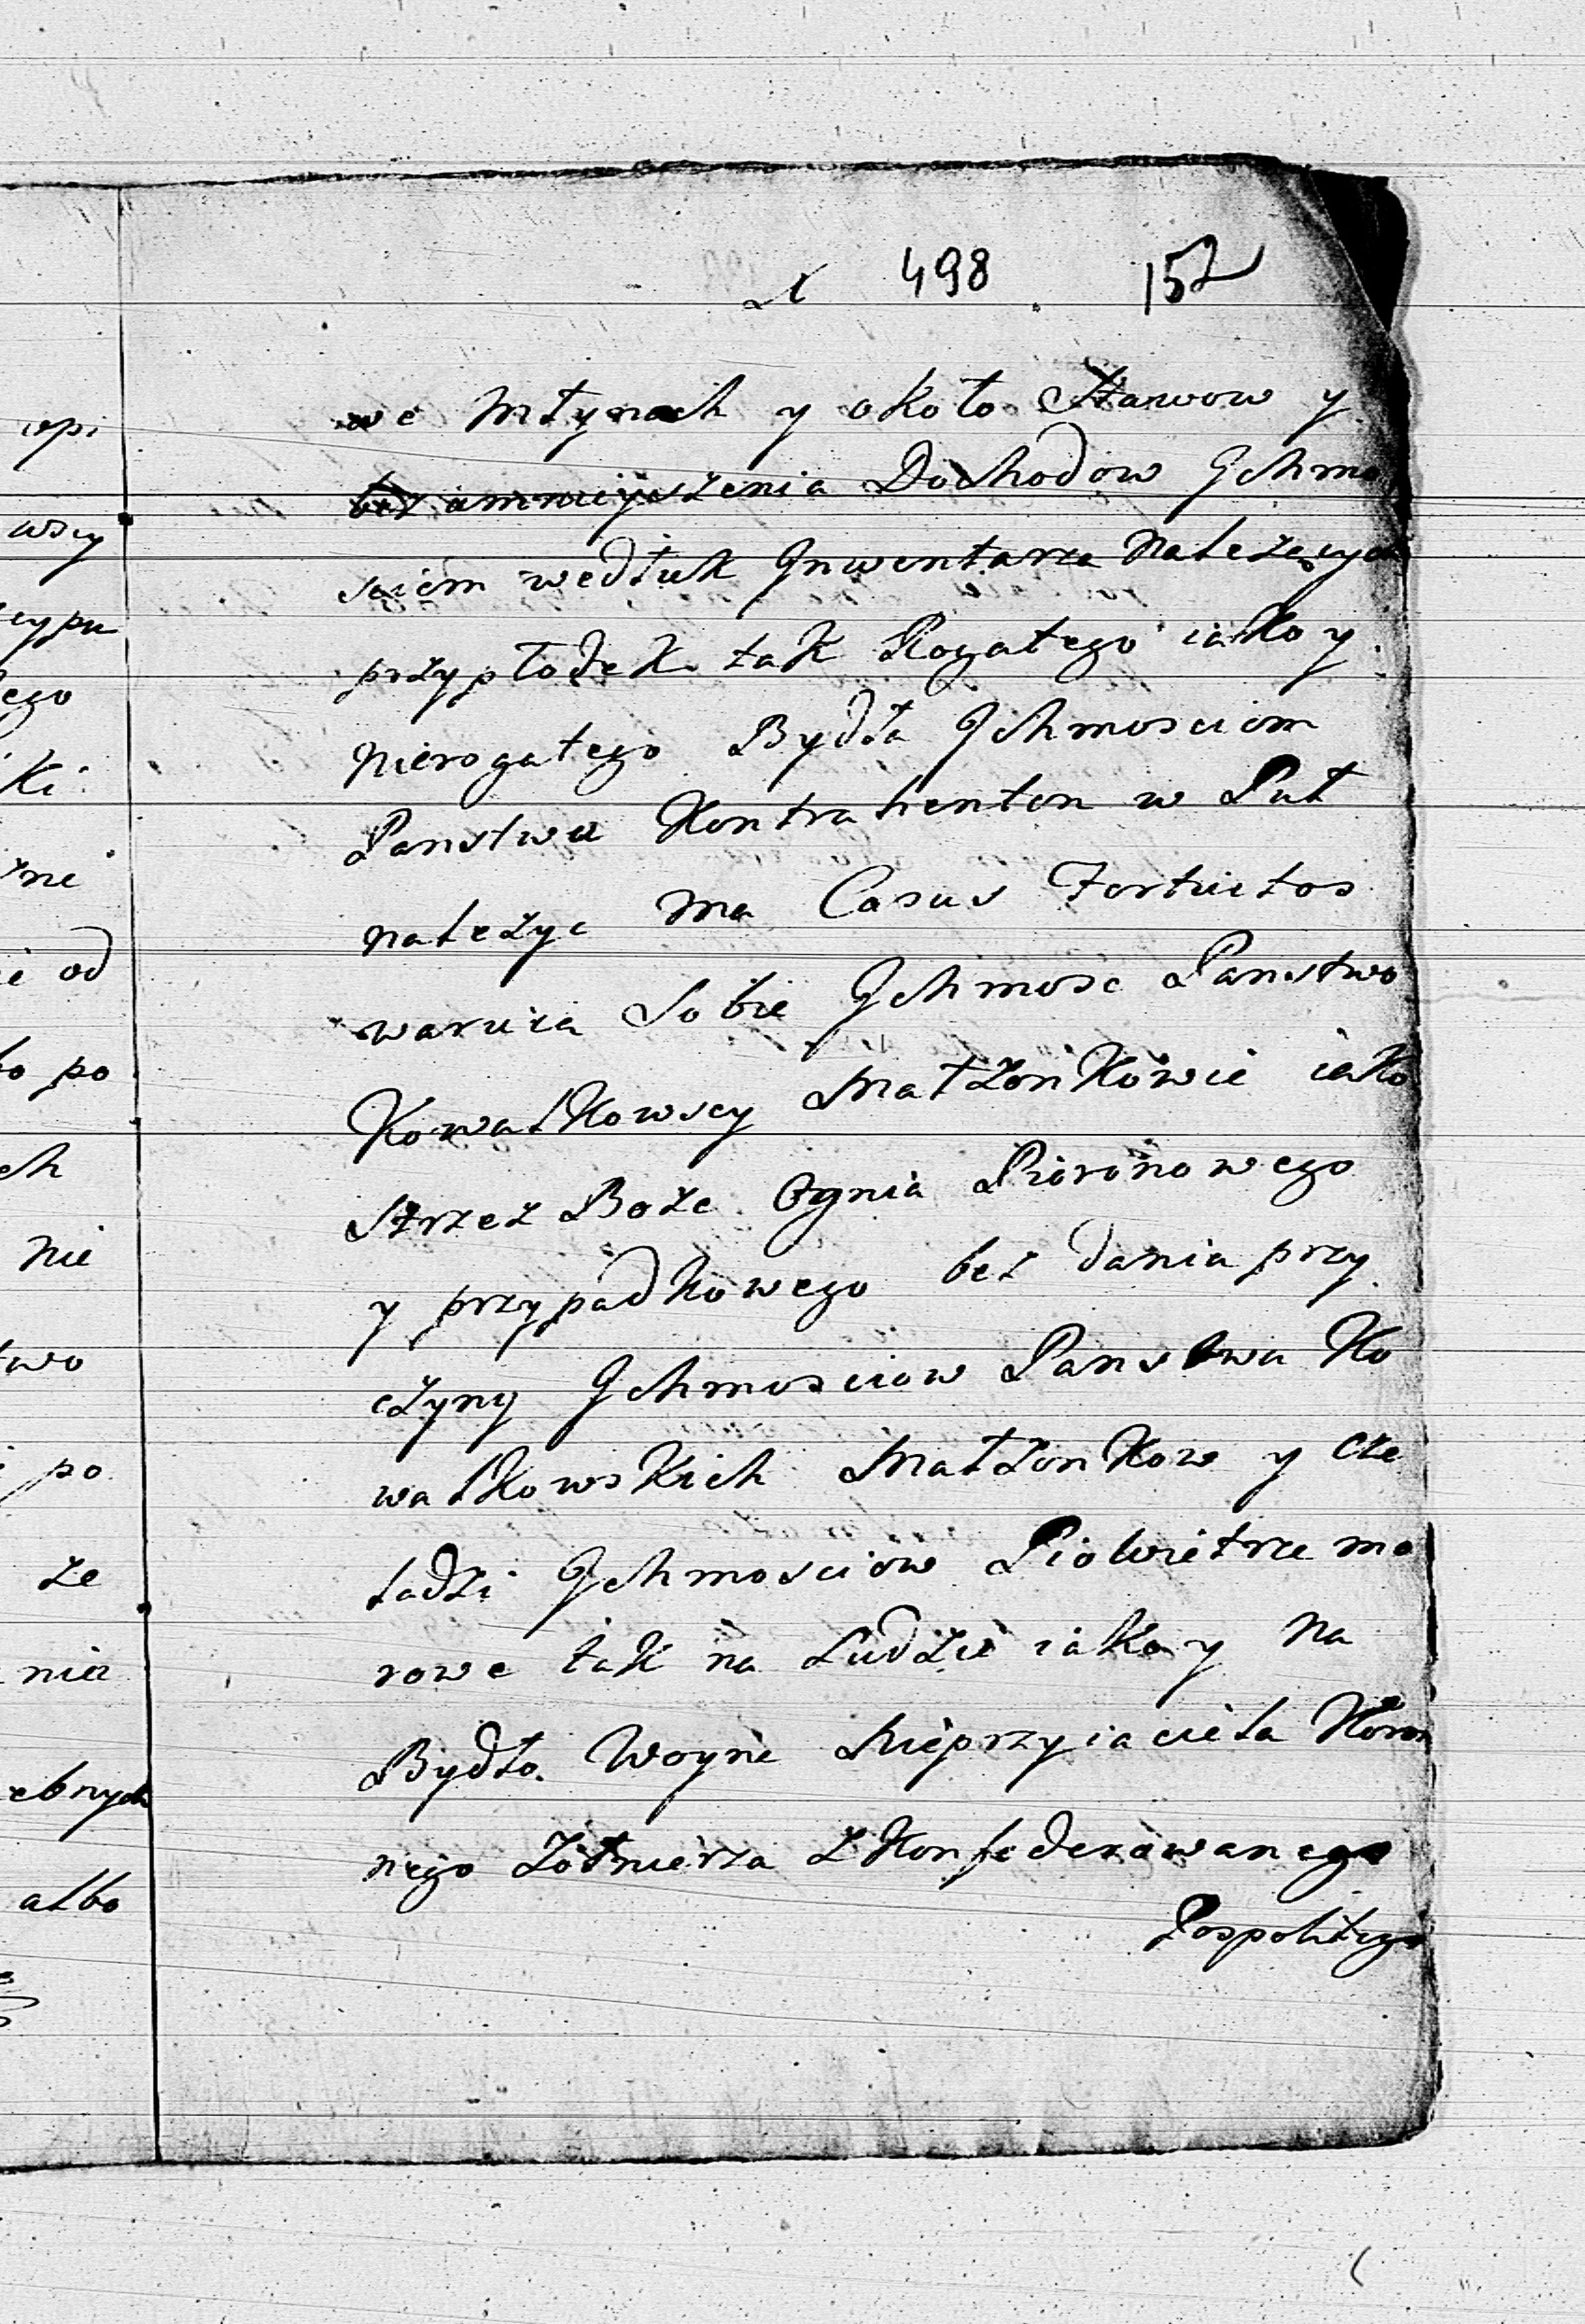 498 152
we Młynach y około Stawow y
bez umnieyszenia Dochodow Jchmo
sciom wedłuk Jnwentarza Należących
przypłodek tak Rogatego iako y
nierogatego Bydła Jchmosciom
Panstwu Kontrahentom w Puł
należyc ma Casus Fortuitos
waruia Sobie Jchmosc Panstwo
Kowalkowscy Małżonkowie iako
strzez Boże Ognia Piorónowego
y przypadkowego bez dania przy
czyny Jchmosciow Panstwa Ko
walkowskich Małżonkow y Cze
ladzi Jchmosciow Piowietrze mo
rowe tak na Ludzie iako y na
Bydło. Woyne Nieprzyiaciela Koron
nego Zołnierza Zkonfederowanego
Pospolitego
wpi
wscy
ego
ki
żni
ie od
po
ch
nie
two
po
że
nia
ebnych
albo